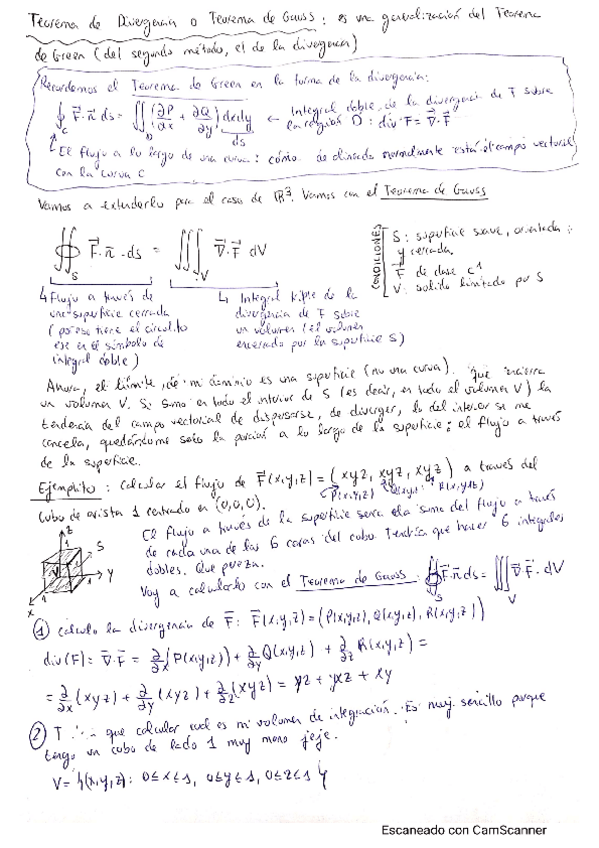 Teorema de Divergencia o Teorema de Gauss: es una generalización del Teorema
de Green (del segundo método, el de la divergencia)
Recordemos el Teorema de Green en la forma de la divergencia:
∮_C F⃗·n⃗ ds = ∬_D (∂P/∂x + ∂Q/∂y) dxdy ← Integral doble de la divergencia de F sobre
ds la región D: div F = ∇⃗·F⃗
El flujo a lo largo de una curva: cómo de alineado normalmente está el campo vectorial
con la curva C
Vamos a extenderlo para el caso de ℝ³. Vamos con el Teorema de Gauss
∯_S F⃗·n⃗·ds = ∭_V ∇⃗·F⃗ dV
CONDICIONES
S: superficie suave, orientada
y cerrada.
F⃗ de clase C¹
V: solido limitado por S
Flujo a través de
una superficie cerrada
(por eso tiene el circulito
ese en el símbolo de
integral doble)
Integral triple de la
divergencia de F sobre
un volumen (el volumen
encerrado por la superficie S)
Ahora, el límite de mi dominio es una superficie (no una curva). que encierra
un volumen V. Si sumo en todo el interior de S (es decir, en todo el volumen V) la
tendencia del campo vectorial de dispersarse, de diverger, lo del interior se me
cancela, quedándome solo la porción a lo largo de la superficie: el flujo a través
de la superficie.
Ejemplito: calcular el flujo de F⃗(x,y,z) = (xyz, xyz, xyz) a través del
P(x,y,z) Q(x,y,z) R(x,y,z)
cubo de arista 1 centrado en (0,0,0).
z
S
V
y
x
El flujo a través de la superficie sería la suma del flujo a través
de cada una de las 6 caras del cubo. Tendría que hacer 6 integrales
dobles. Que pereza.
Voy a calcularlo con el Teorema de Gauss: ∯_S F⃗·n⃗ ds = ∭_V ∇⃗·F⃗·dV
① cálculo la divergencia de F⃗: F⃗(x,y,z) = (P(x,y,z), Q(x,y,z), R(x,y,z))
div(F) = ∇⃗·F⃗ = ∂/∂x (P(x,y,z)) + ∂/∂y Q(x,y,z) + ∂/∂z R(x,y,z) =
= ∂/∂x (xyz) + ∂/∂y (xyz) + ∂/∂z (xyz) = yz + xz + xy
② T que calcular cual es mi volumen de integración. Es muy sencillo porque
tengo un cubo de lado 1 muy mono jeje.
V = {(x,y,z): 0≤x≤1, 0≤y≤1, 0≤z≤1}
Escaneado con CamScanner